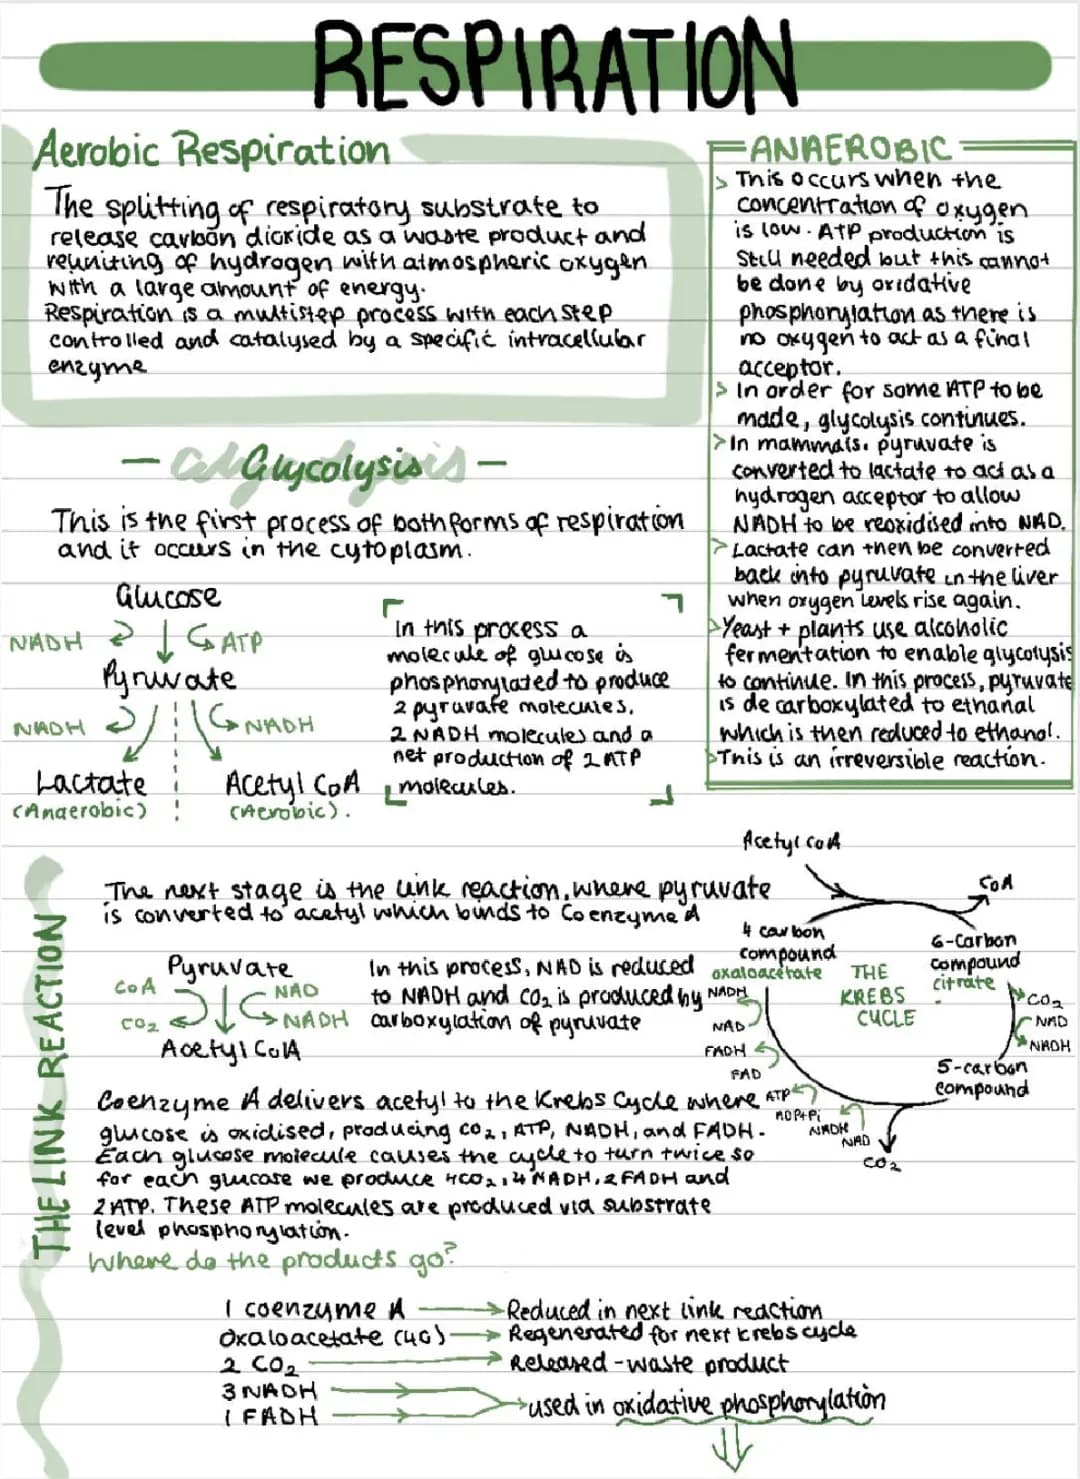 RESPIRATION
Aerobic Respiration
The splitting of respiratory substrate to
release carbon dioxide as a waste product and
reuniting of hydrogen with atmospheric oxygen
with a large amount of energy.
Respiration is a multistep process with each step
controlled and catalysed by a specific intracellular
enzyme
ANAEROBIC
> This occurs when the
concentration of oxygen
is low. ATP production is
still needed but this cannot
be done by oxidative
phosphorylation as there is
no oxygen to act as a final
acceptor.
> In order for some ATP to be
made, glycolysis continues.
> In mammals, pyruvate is
converted to lactate to act as a
hydrogen acceptor to allow
NADH to be reoxidised into NAD.
> Lactate can then be converted
back into pyruvate in the liver
when oxygen levels rise again.
> Yeast + plants use alcoholic
fermentation to enable glycolysis
to continue. In this process, pyruvate
is decarboxylated to ethanal
which is then reduced to ethanol.
> This is an irreversible reaction.
- Glycolysis -
This is the first process of both forms of respiration
and it occurs in the cytoplasm.
Glucose
NADH ATP
Pyruvate
NADH NADH
Lactate Acetyl CoA
(Anaerobic) (Aerobic).
In this process a
molecule of glucose is
phosphorylated to produce
2 pyruvate molecules,
2 NADH molecules and a
net production of 2 ATP
molecules.
THE LINK REACTION
The next stage is the link reaction, where pyruvate
is converted to acetyl which binds to Coenzyme A
Pyruvate
CoA NAD
CO2 NADH
Acetyl CoA
In this process, NAD is reduced
to NADH and CO2 is produced by
carboxylation of pyruvate
Acetyl CoA
CoA
4 carbon
compound
oxaloacetate
THE
KREBS
CYCLE
6-Carbon
compound
citrate
CO2
NAD
NADH
5-carbon
compound
CO2
NAD
NADH
ADP+Pi
ATP
FAD
FADH
NAD
NADH
Coenzyme A delivers acetyl to the Krebs Cycle where
glucose is oxidised, producing CO2, ATP, NADH, and FADH.
Each glucose molecule causes the cycle to turn twice so
for each glucose we produce 4CO2, 4 NADH, 2 FADH and
2 ATP. These ATP molecules are produced via substrate
level phosphorylation.
Where do the products go?
1 coenzyme A → Reduced in next link reaction
Oxaloacetate (4C) → Regenerated for next krebs cycle
2 CO2 → Released - waste product
3 NADH
1 FADH
→ used in oxidative phosphorylation